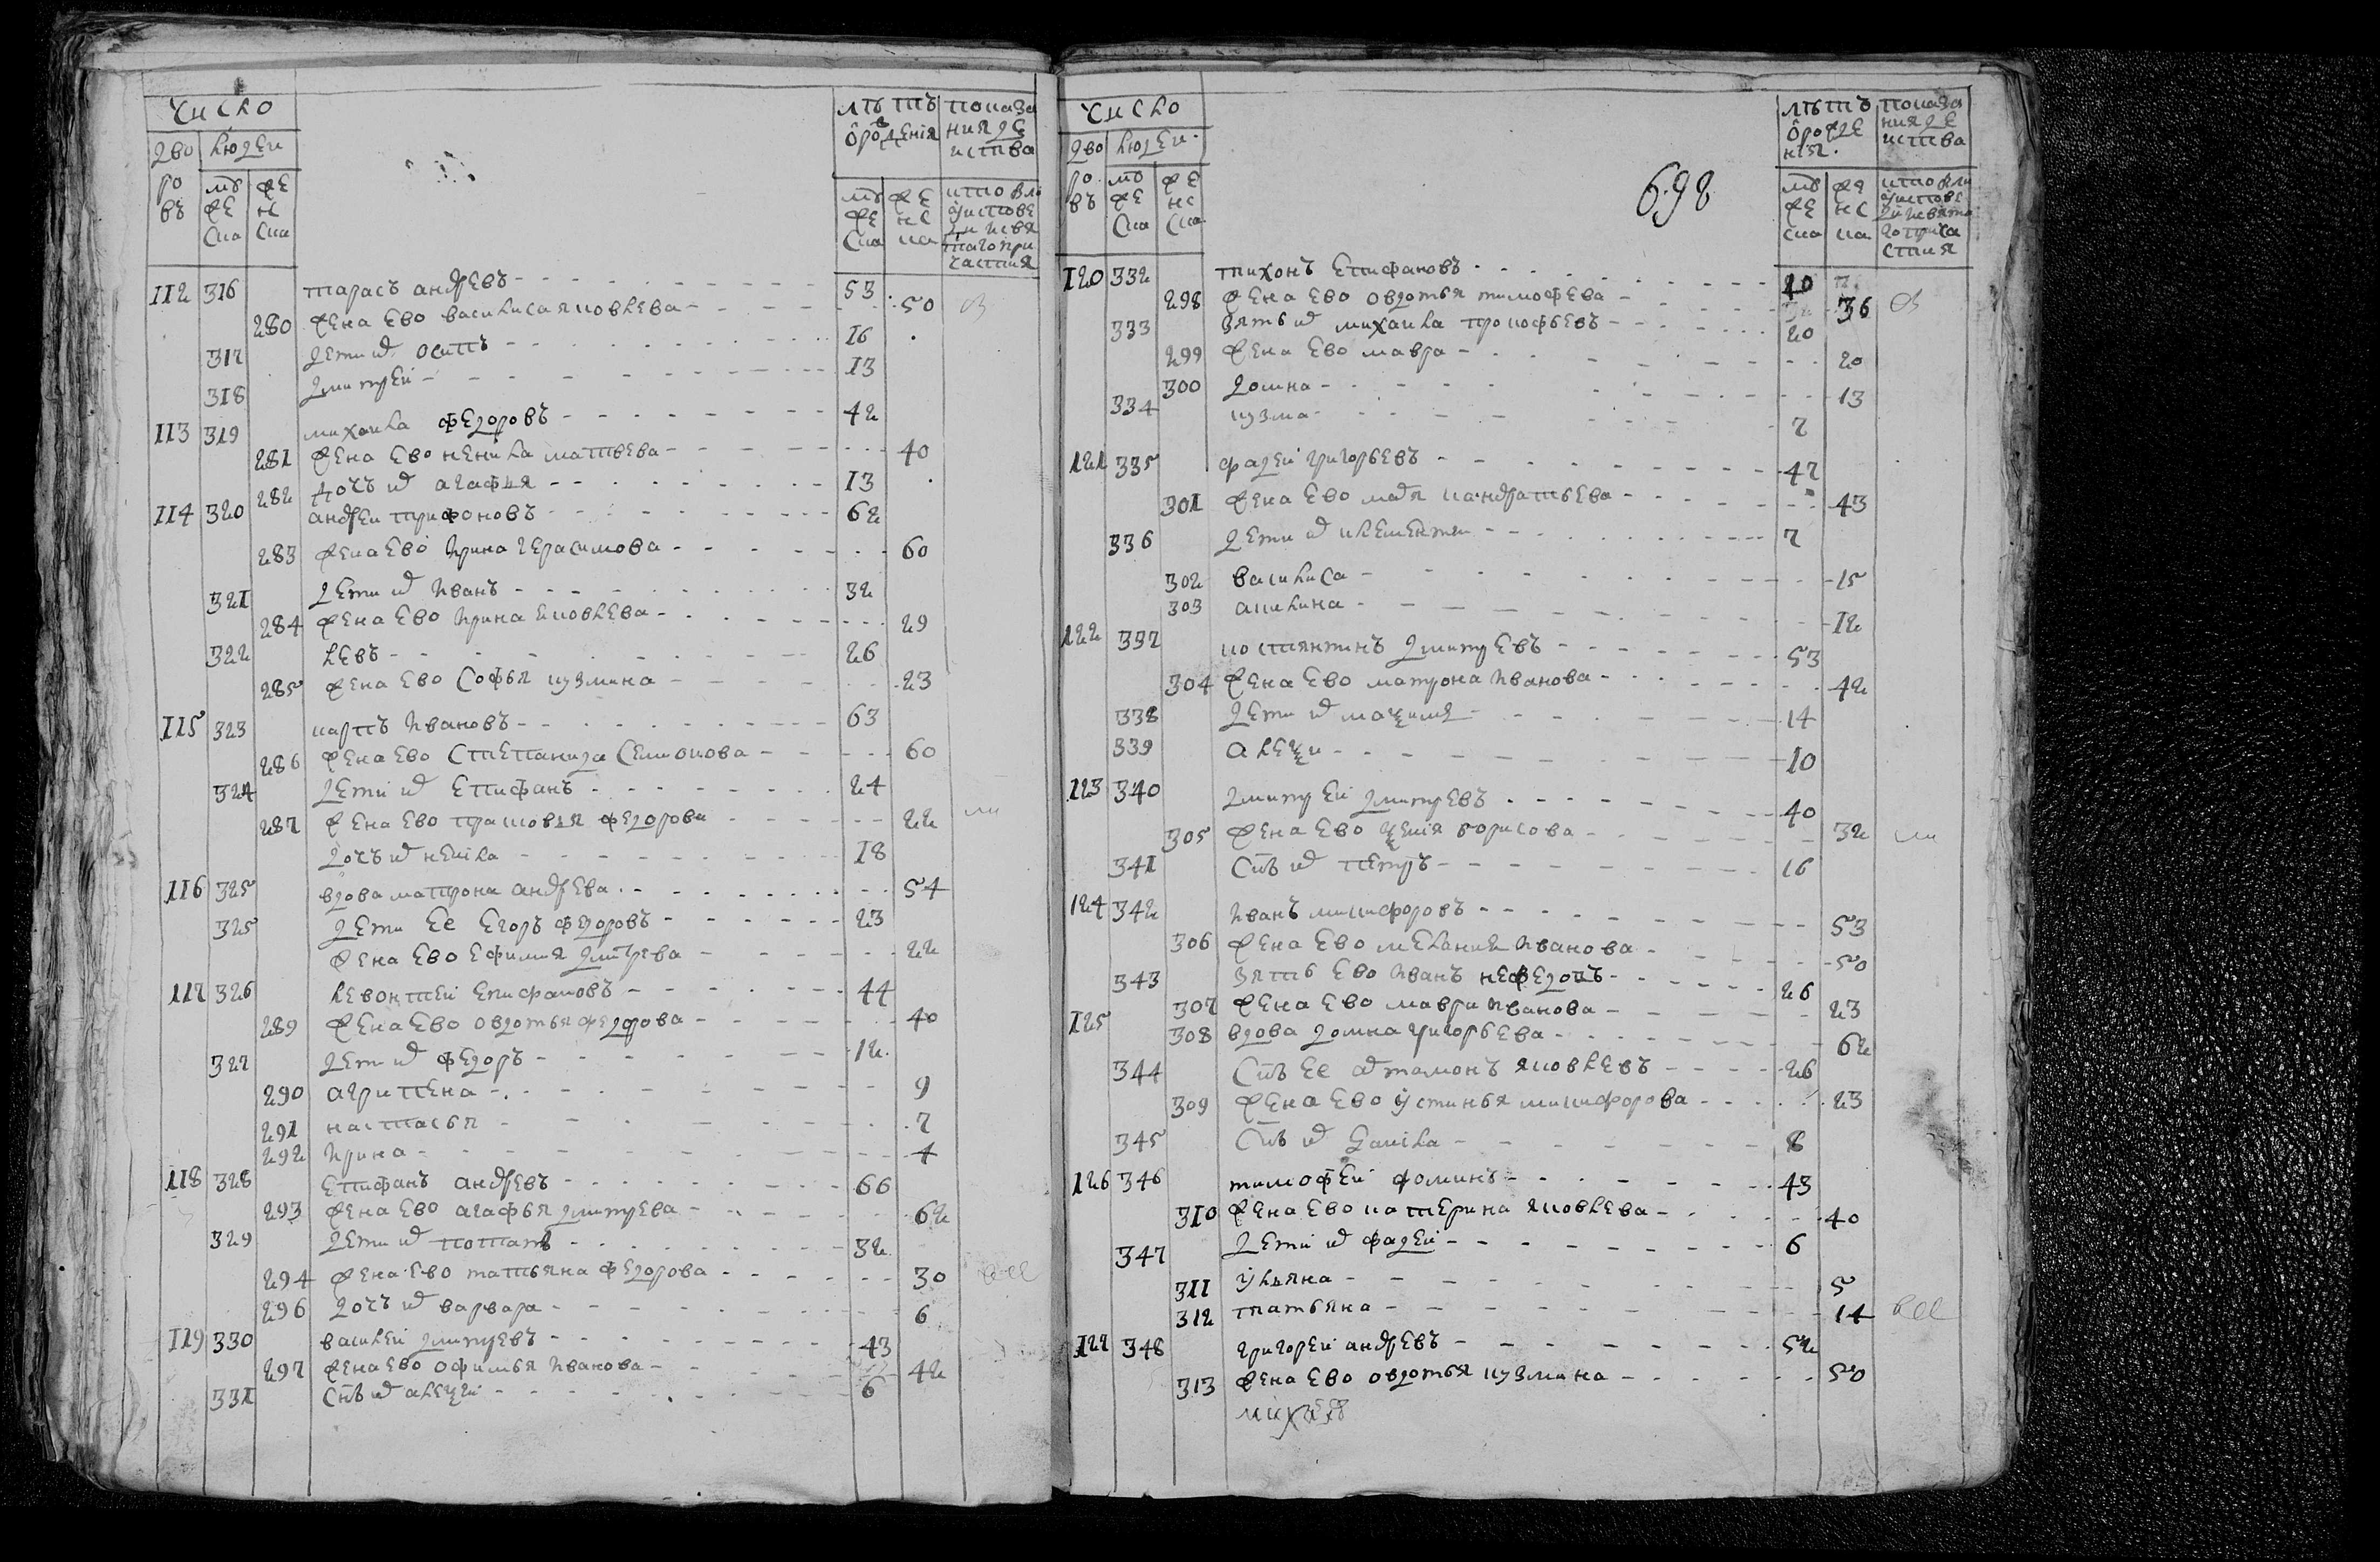 число
лѣтъ показа
дво людеи
ѿрожденія ния де
иства
ро му же
въ же нс
ска ска
му же кто бы
же нс
ска ка
частия
112 316 тарасъ андревъ 53
280 жена ево василиса яковлева 50
317 дети иⷯ осипъ 16
318 дмитреи 13
113 319 михаила федоровъ 42
281 жена ево ненила матвева 40
282 дочъ иⷯ агафья 13
114 320 андреи трифоновъ 62
283 жена ево ирина герасимова 60
321 дети иⷯ иванъ 32
284 жена ево ирина яковлева 29
322 левъ 26
285 жена ево софья кузмина 23
115 323 карпъ ивановъ 63
286 жена ево степанида семионова 60
324 дети иⷯ епифанъ 24
287 жена ево прасковья федорова 22
дочъ иⷯ неніла 18
116 325 вдова матрона андрева 54
325 дети ее егоръ федоровъ 23
жена ево ефимия дмитрева 22
117 326 левонтеи епифановъ 44
289 жена ево овдотья федорова 40
327 дети иⷯ федоръ 12
290 агрипена 9
291 настасья 7
292 ирина 4
118 328 епифанъ андревъ 66
293 жена ево агафья дмитрева 62
329 дети иⷯ потапъ 32
294 жена ево татьяна федорова 30
296 дочъ иⷯ варвара 6
119 330 василеи дмитревъ 43
297 жена ево офимья иванова 42
331 снъ иⷯ алеѯеи 6
число
лѣтъ показа
дво людеи
ѿрожде ния де
нія иства
ро му же
въ же нс
ска ска
му же кто бы
же нс
ска ка
стия
698
120 332 тихонъ епифановъ 40
298 жена ево овдотья тимофева 36
333 зять иⷯ михаила прокофьевъ 20
299 жена ево мавра 20
300 домна 13
334 кузма 7
121 335 фадеи григорьевъ 47
301 жена ево марья кандратьева 43
336 дети иⷯ клементеи 7
302 василиса 15
303 акилина 12
122 337 костянтинъ дмитревъ 53
304 жена ево матрона иванова 42
338 дети иⷯ маѯимъ 14
339 алеѯеи 10
123 340 дмитреи дмитревъ 40
305 жена ево ѯения борисова 32
341 снъ иⷯ петръ 16
124 342 иванъ никифоровъ 53
306 жена ево мелания иванова 50
343 зять ево иванъ нефедовъ 26
307 жена ево мавра иванова 23
125 308 вдова домна григорьева 62
344 снъ ее артамонъ яковлевъ 26
309 жена ево устинья никифорова 23
345 снъ иⷯ данила 8
126 346 тимофеи фоминъ 43
310 жена ево катерина яковлева 40
347 дети иⷯ фадеи 6
311 ульяна 5
312 татьяна 14
127 348 григореи андревъ 52
313 жена ево овдотья кузмина 50